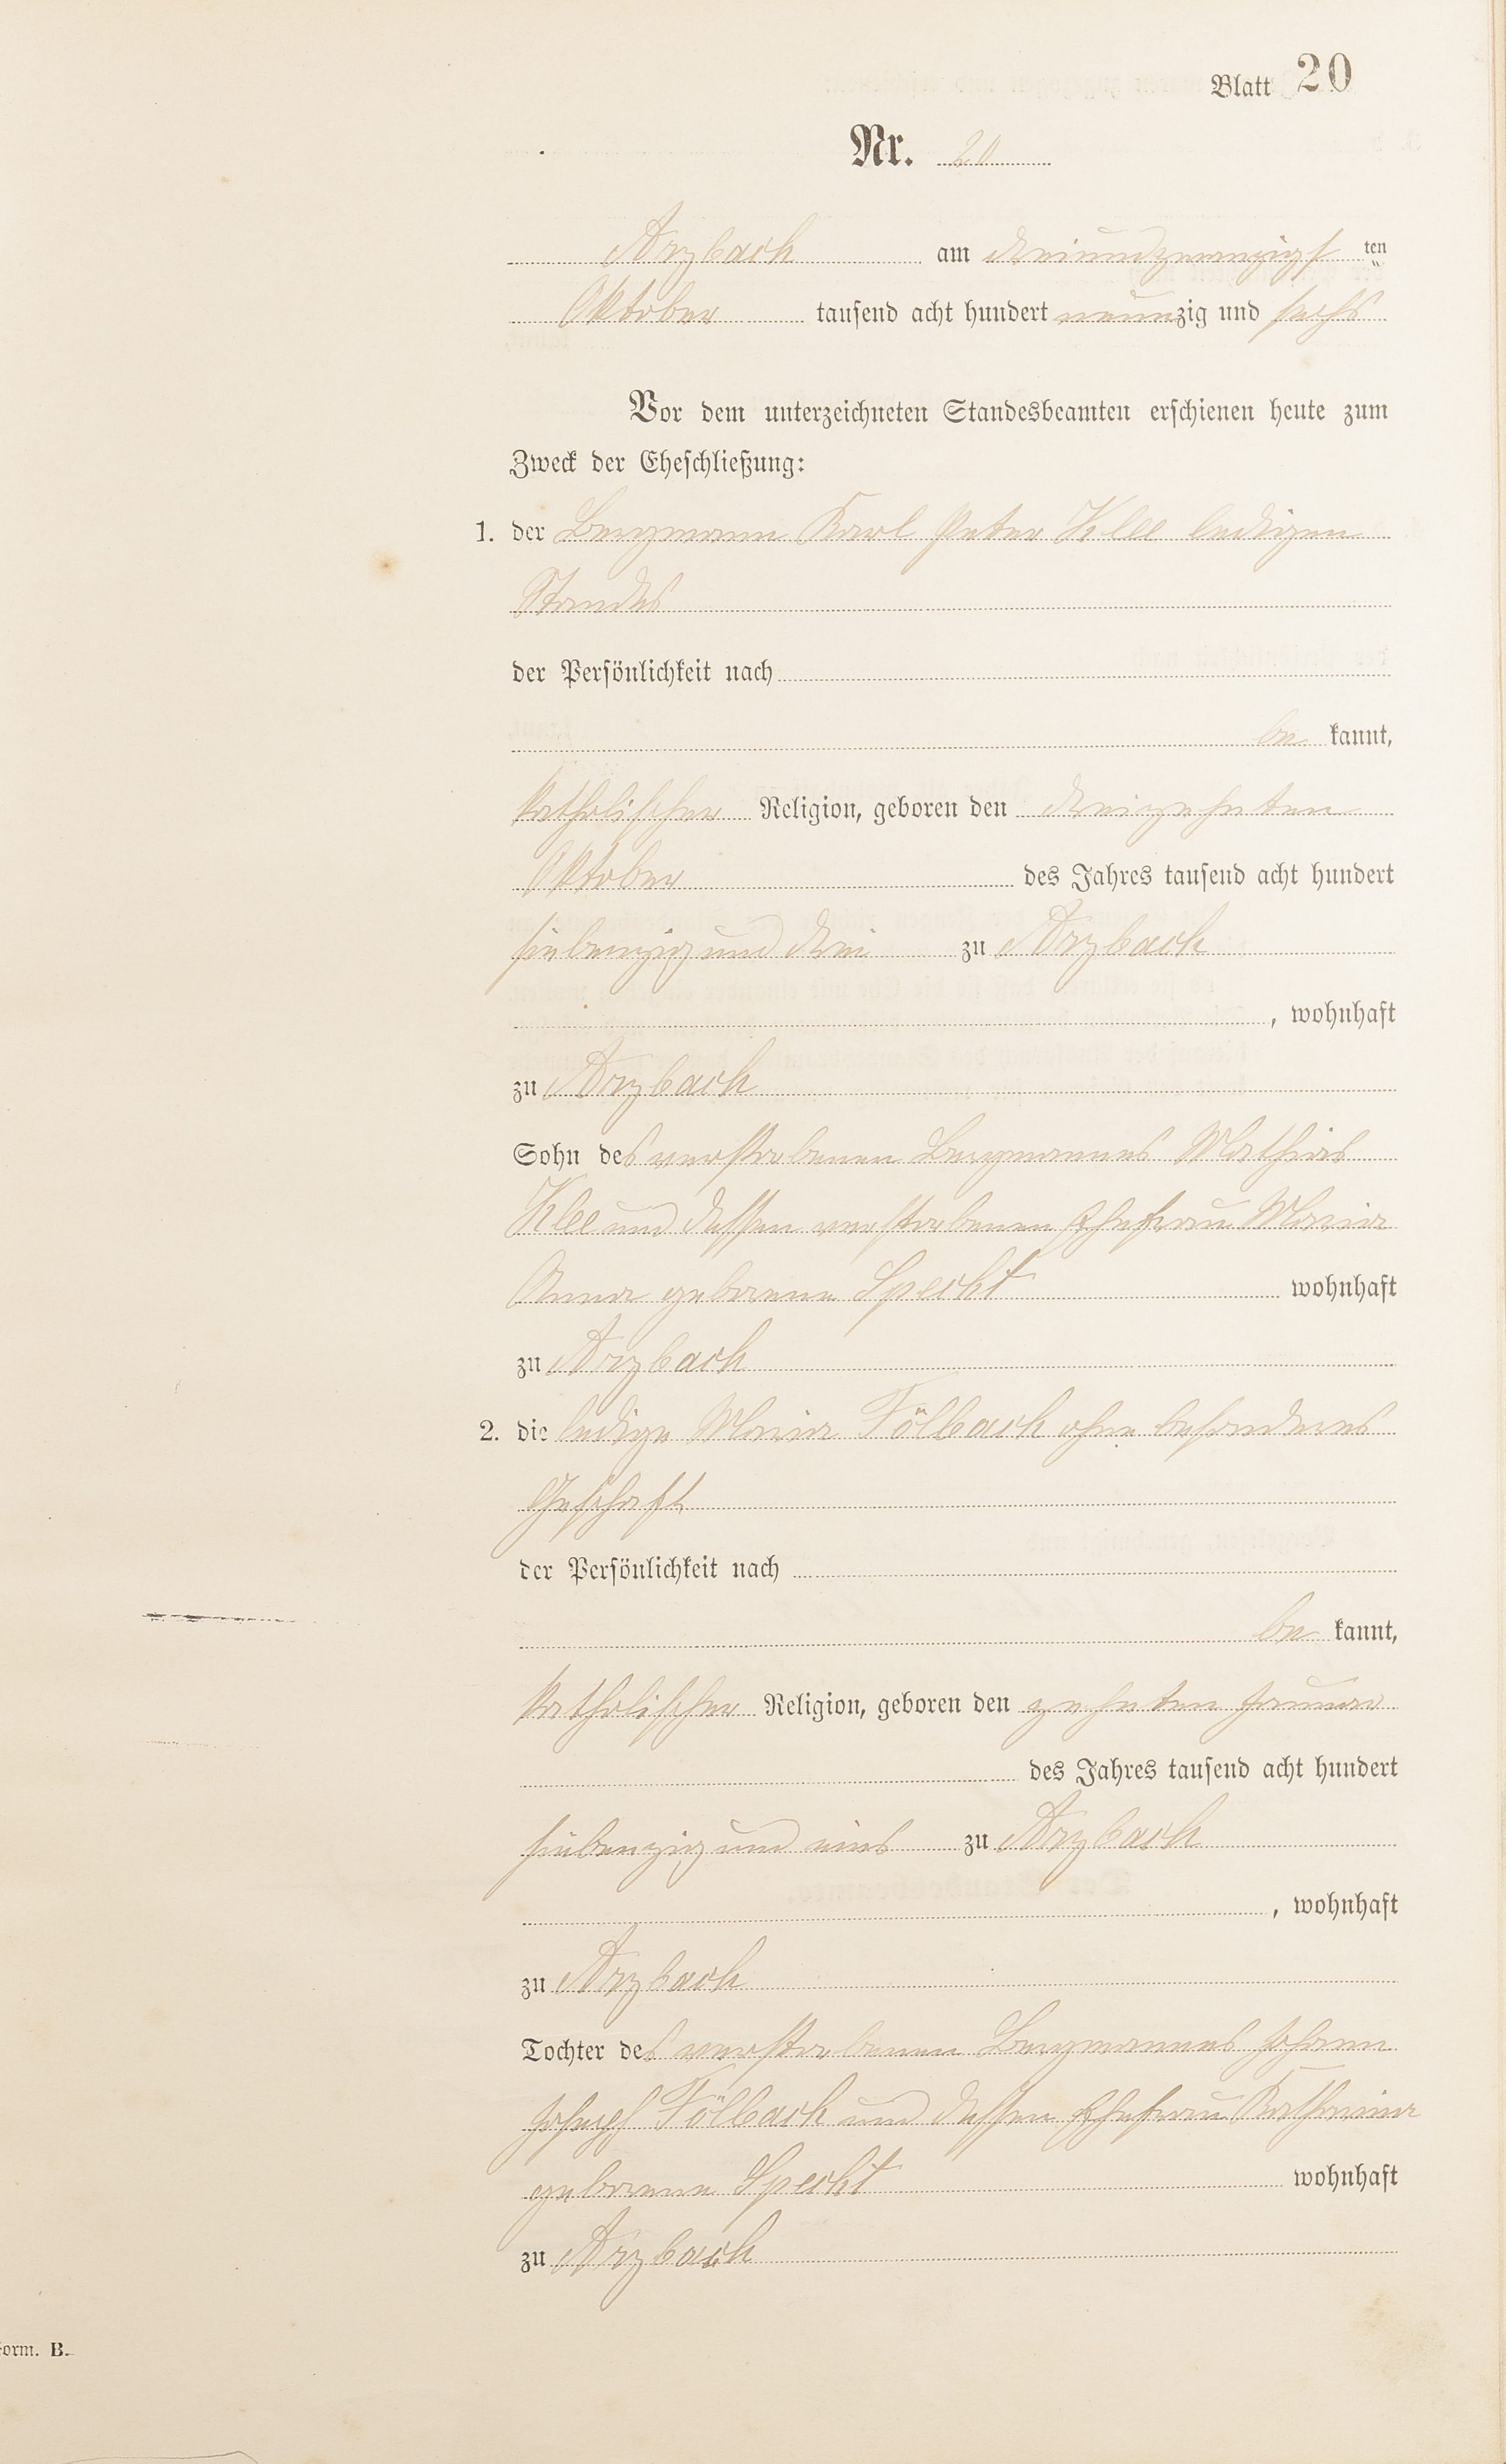 Blatt 20
Nr. 20
Arzbach am dreiundzwanzigsten
Oktober tausend acht hundert neunzig und sechs
Vor dem unterzeichneten Standesbeamten erschienen heute zum
Zweck der Eheschließung:
1. der Bergmann Karl Peter Klee ledigen
Standes
der Persönlichkeit nach
bekannt,
katholischer Religion, geboren den dreizehnten
Oktober des Jahres tausend acht hundert
siebenzig und drei zu Arzbach
, wohnhaft
zu Arzbach
Sohn des verstorbenen Bergmannes Mathias
Klee und dessen verstorbenen Ehefrau Maria
Anna geborene Specht wohnhaft
zu Arzbach
2. die ledige Maria Fölbach ohne besonderes
Geschäft
der Persönlichkeit nach
bekannt,
katholischer Religion, geboren den zehnten Januar
des Jahres tausend acht hundert
siebenzig und eins zu Arzbach
, wohnhaft
zu Arzbach
Tochter des verstorbenen Bergmannes Johann
Joseph Fölbach und dessen Ehefrau Katharina
geborene Specht wohnhaft
zu Arzbach
Form. B.